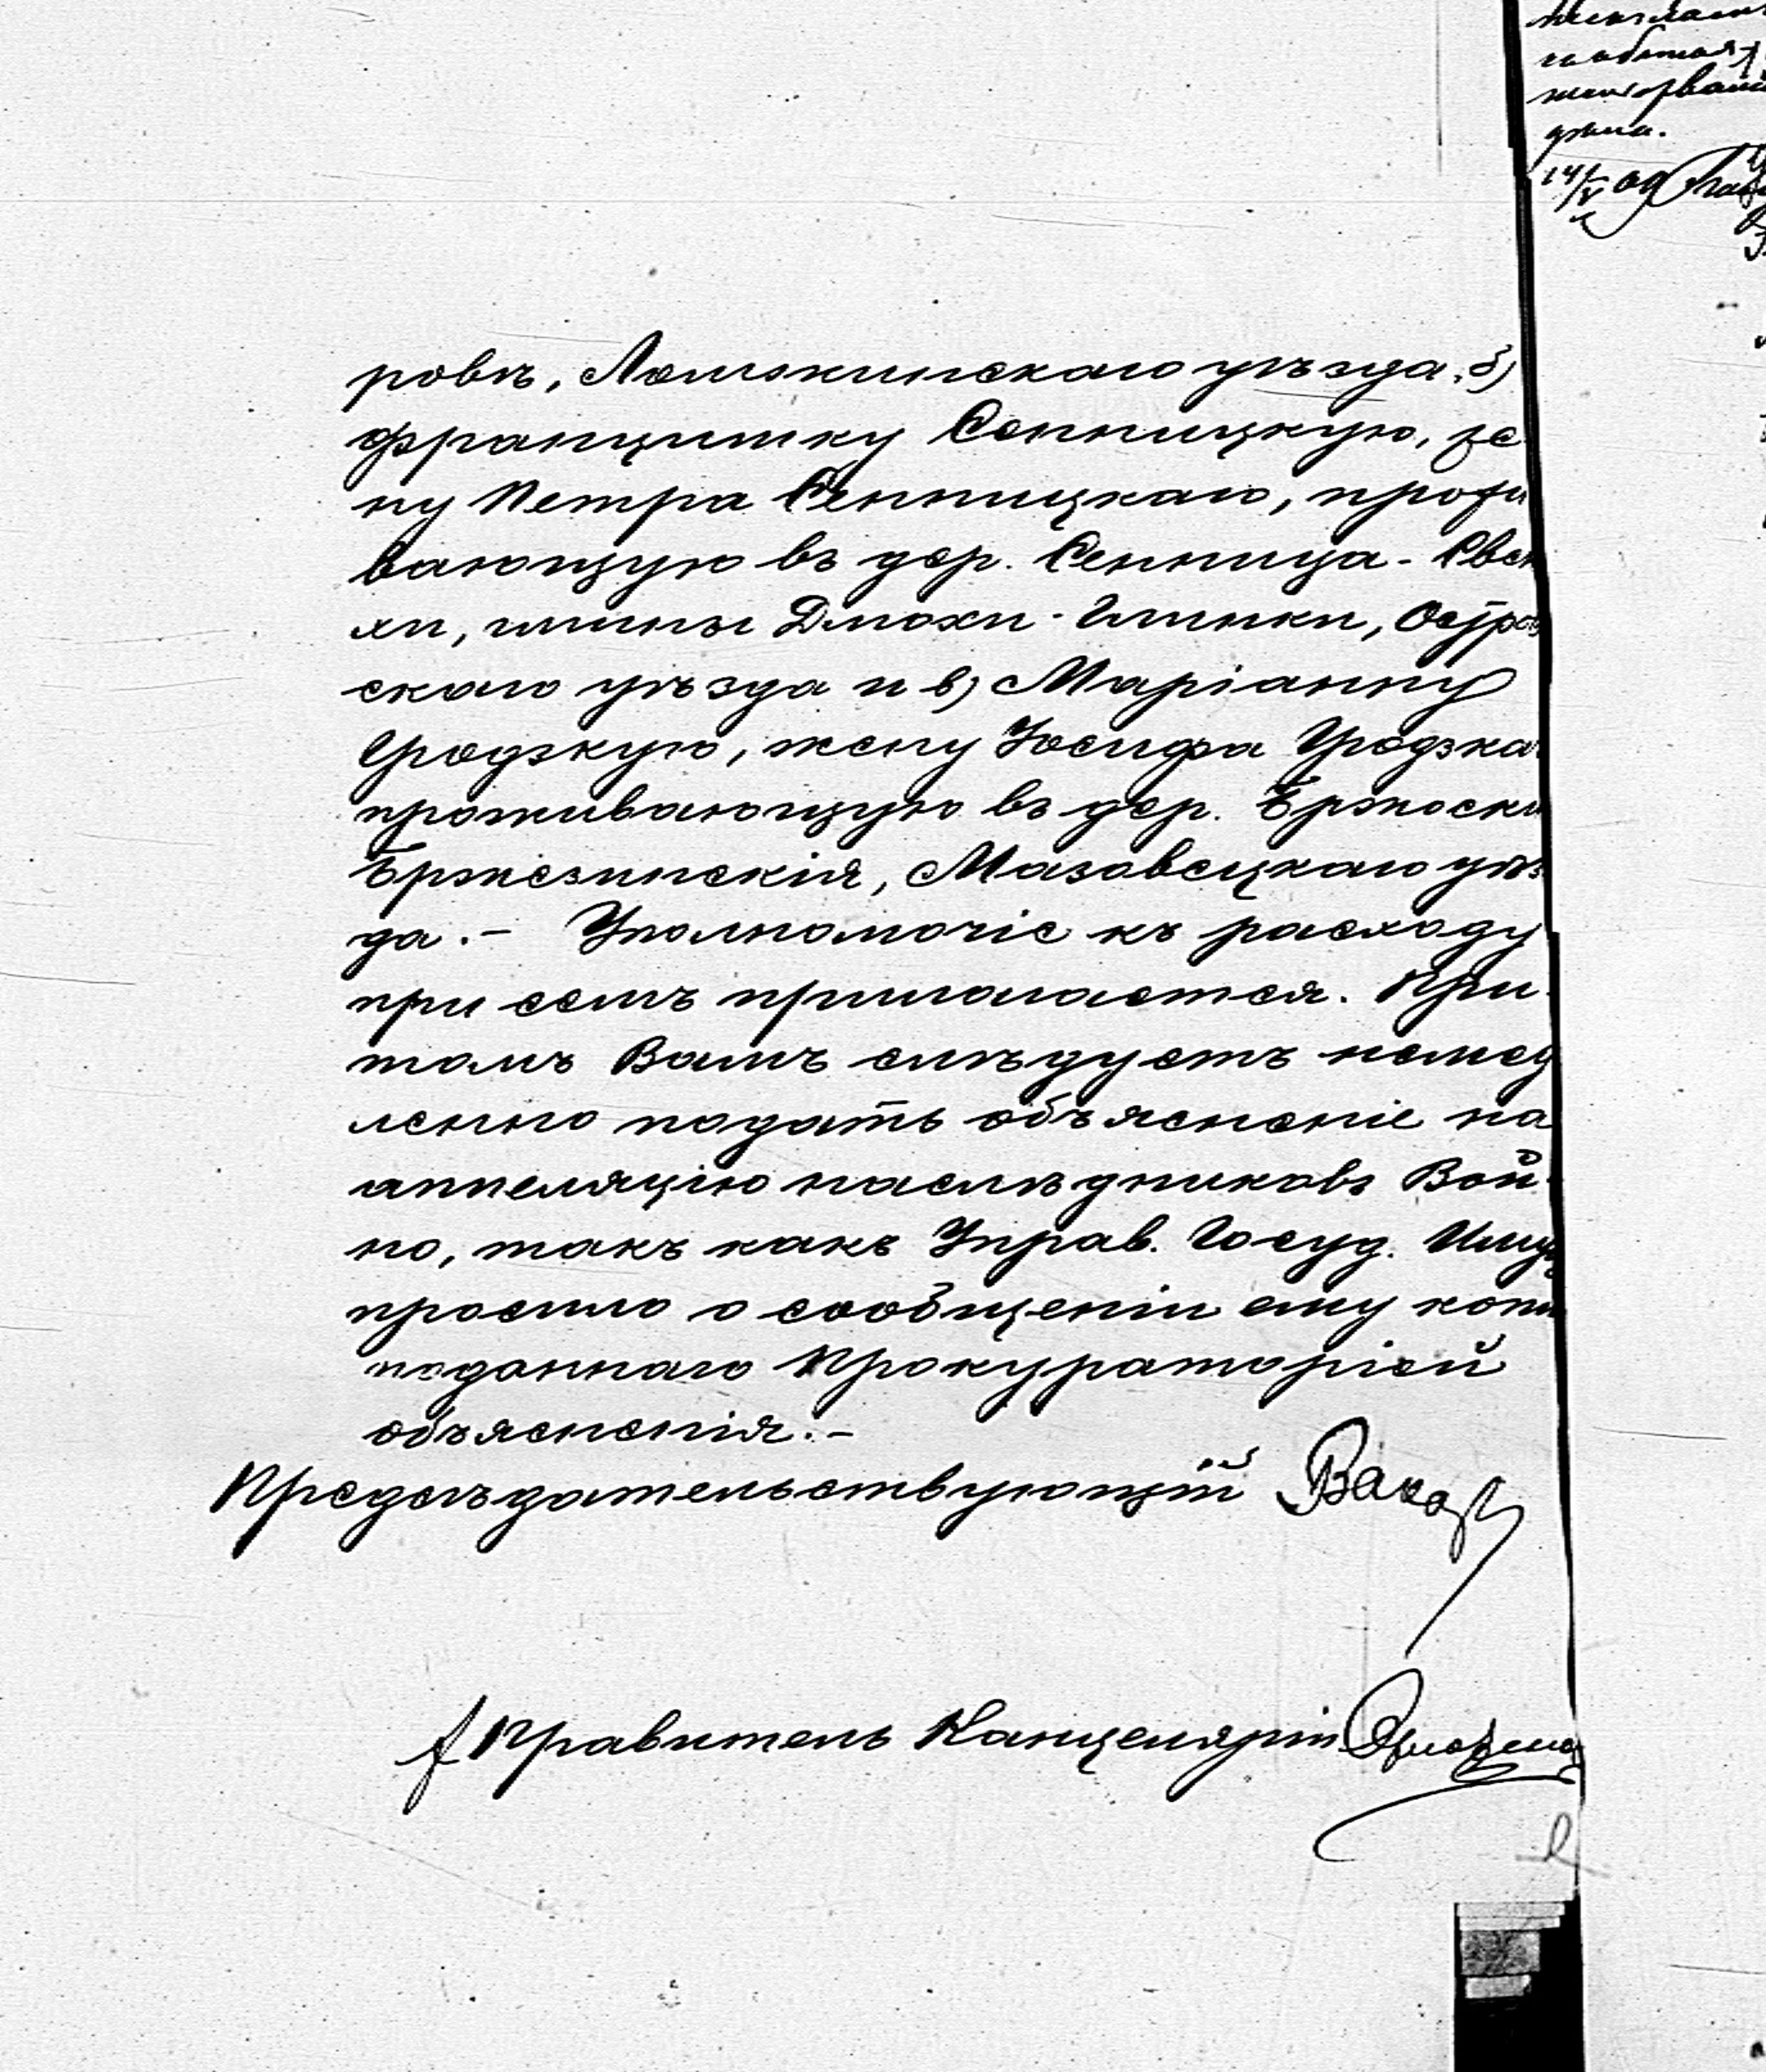 ровъ, Ломжинскаго уѣзда, б)
Францишку Сенницкую, же
ну Петра Сенницкаго, прожи
вающую въ дер. Сенница-Свен
хи, гмины Дмохи-Глинки, Остров
скаго уѣзда и в) Маріанну
Гродзкую, жену Іосифа Гродзка
проживающую въ дер. Бржоски
Бржезинскія, Мазовецкаго уѣз
да.- Уполномочіе къ расходу
при семъ прилагается. При
томъ Вамъ слѣдуетъ немед
ленно подать объясненіе на
аппеляцію наслѣдниковъ Вой
но, такъ какъ Управ. Госуд. Имущ
просило о сообщеніи ему копи
поданнаго Прокураторіей
объясненія.-
Предсѣдательствующій
Правитель Канцеляріи